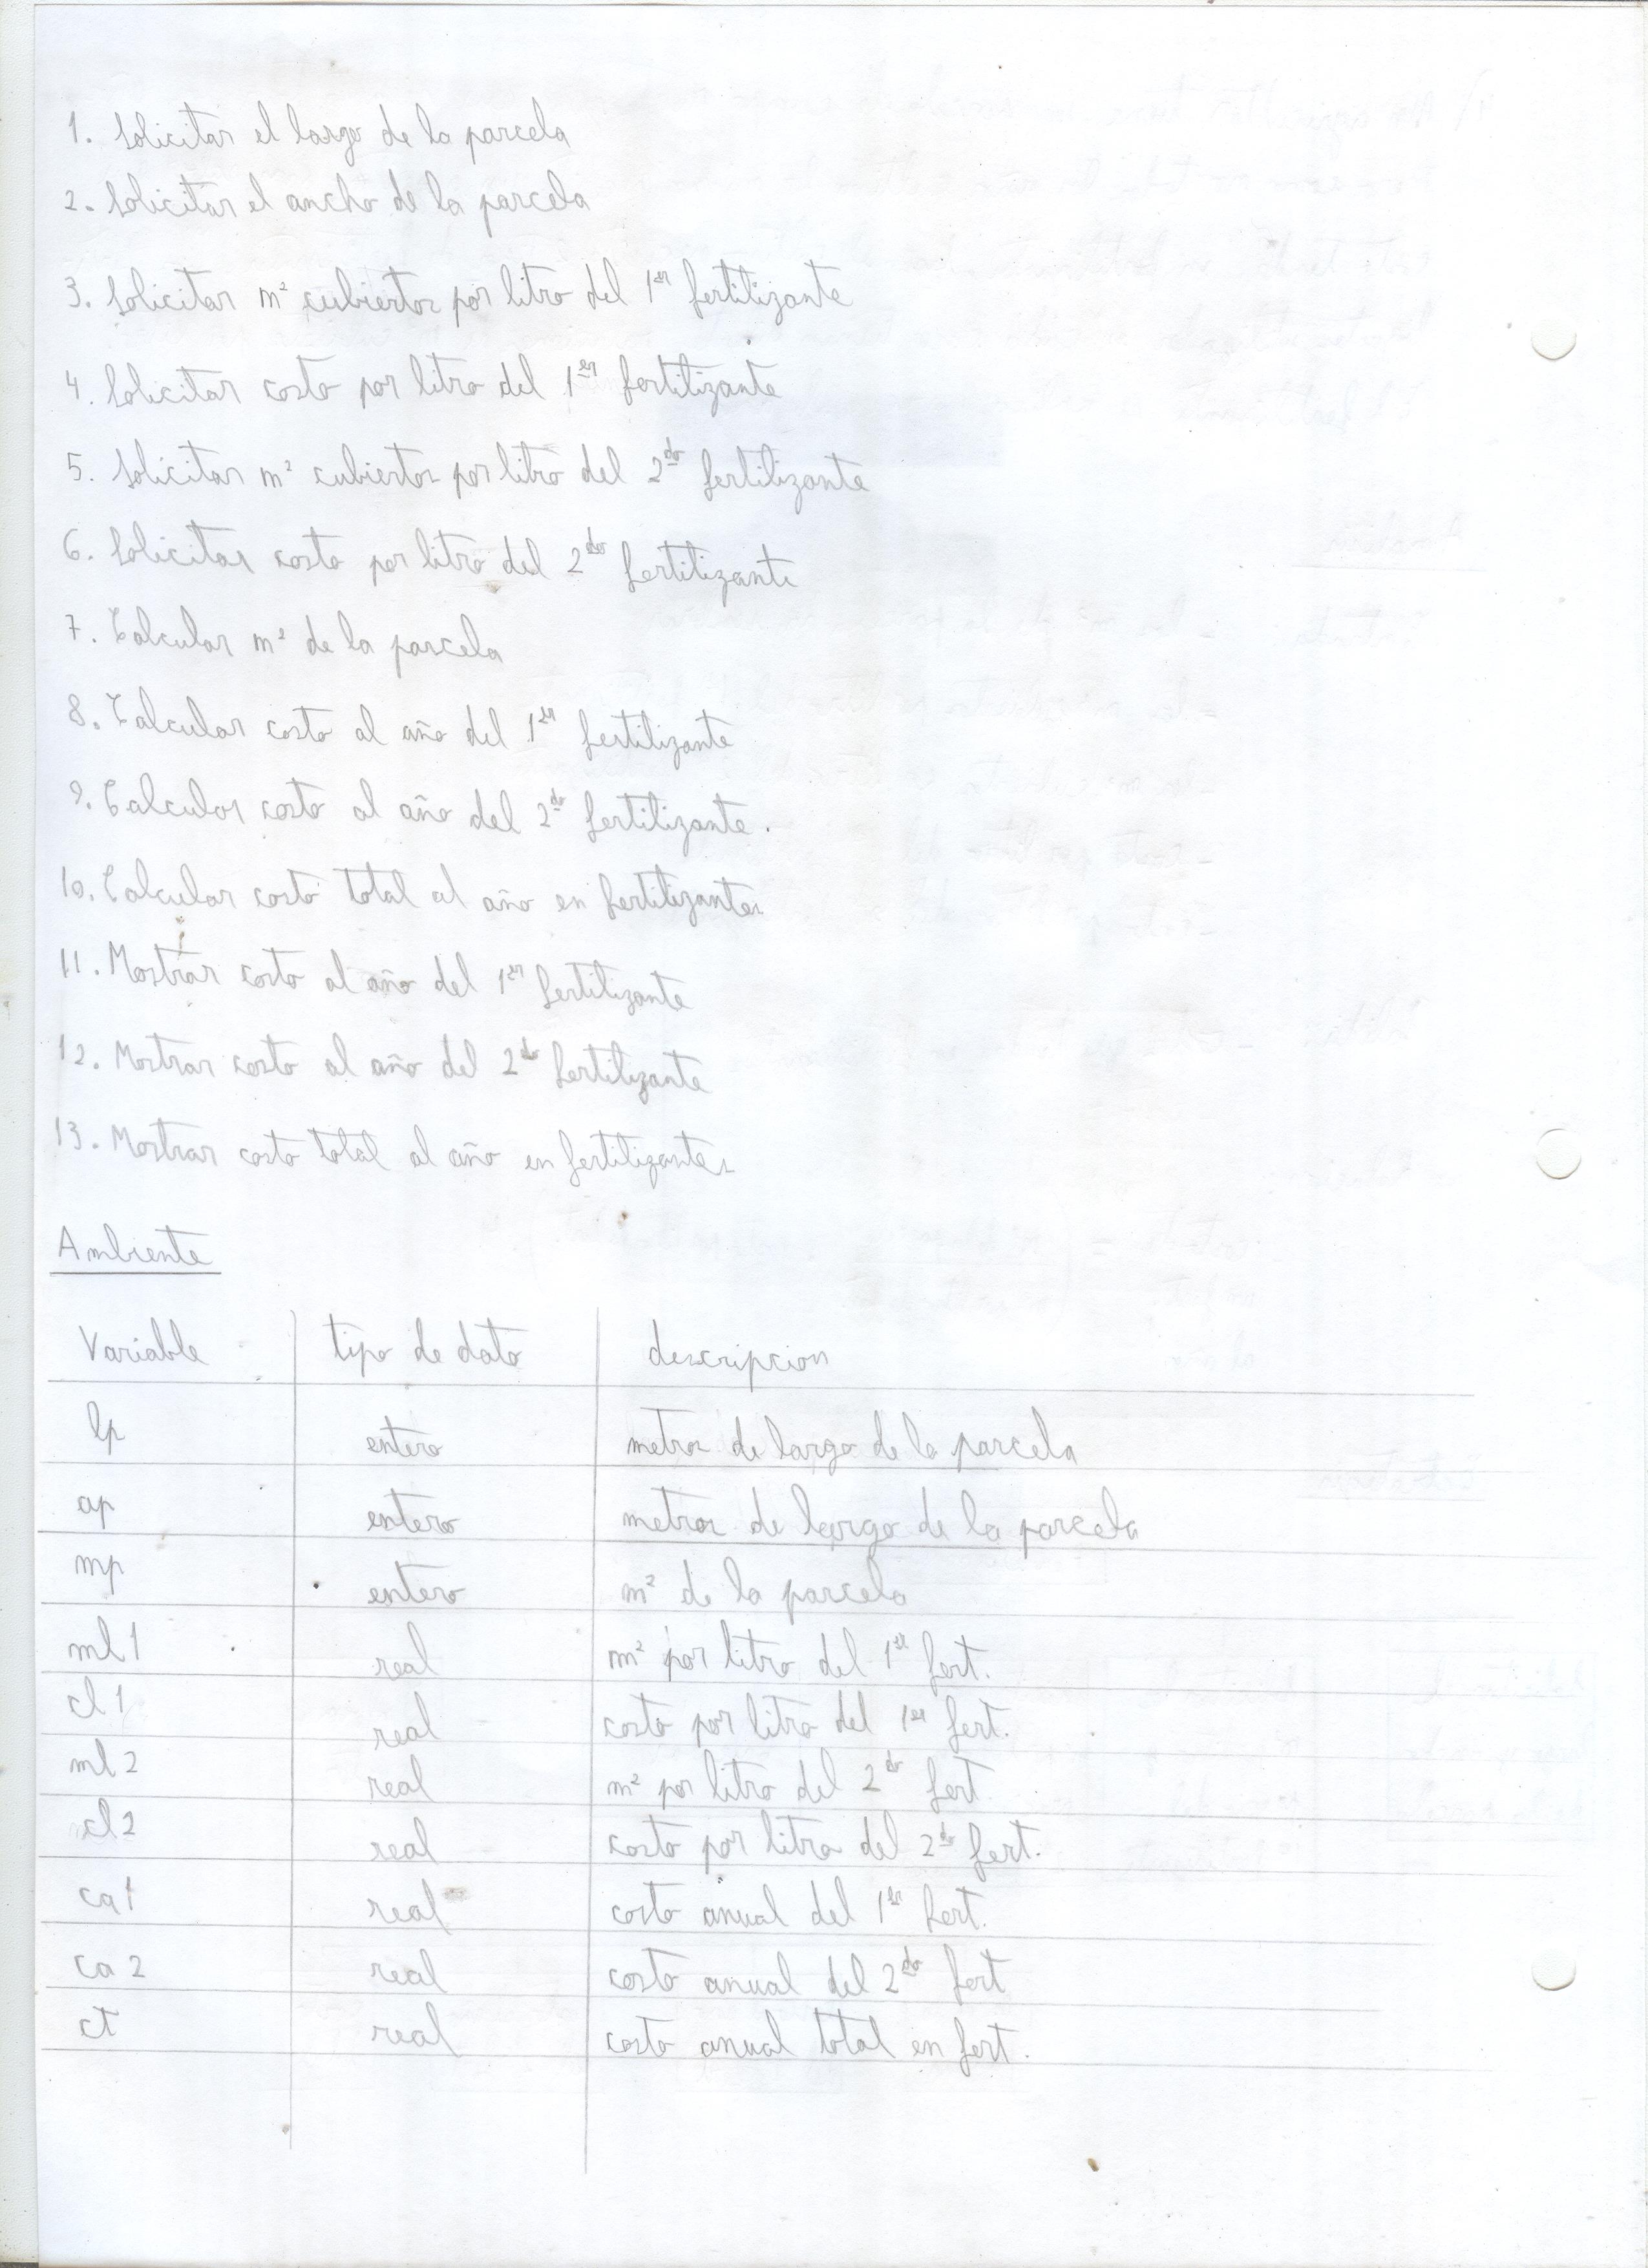 1. Solicitar el largo de la parcela
2. Solicitar el ancho de la parcela
3. Solicitar m² cubiertos por litro del 1er fertilizante
4. Solicitar costo por litro del 1er fertilizante
5. Solicitar m² cubiertos por litro del 2do fertilizante
6. Solicitar costo por litro del 2do fertilizante
7. Calcular m² de la parcela
8. Calcular costo al año del 1er fertilizante
9. Calcular costo al año del 2do fertilizante.
10. Calcular costo total al año en fertilizantes
11. Mostrar costo al año del 1er fertilizante
12. Mostrar costo al año del 2do fertilizante
13. Mostrar costo total al año en fertilizantes
Ambiente
Variable tipo de dato descripcion
lp entero metros de largo de la parcela
ap entero metros de largo de la parcela
mp entero m² de la parcela
ml1 real m² por litro del 1er fert.
cl1 real costo por litro del 1er fert.
ml2 real m² por litro del 2do fert
cl2 real costo por litro del 2do fert.
ca1 real costo anual del 1er fert.
ca2 real costo anual del 2do fert
ct real costo anual total en fert.